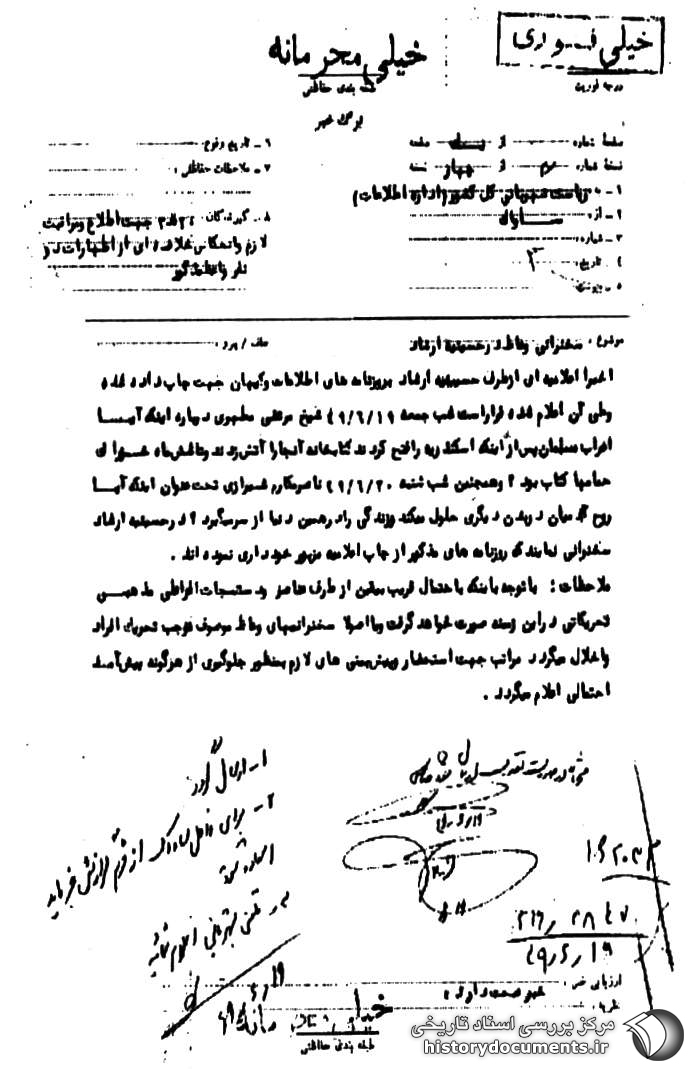 خیلی فوری
درجه فوریت
خیلی محرمانه
طبقه بندی حفاظتی
برگ خبر
صفحه شماره از یک صفحه
نسخه شماره از چهار نسخه
۱ـ به ریاست شهربانی کل کشور (اداره اطلاعات)
۲ـ از: ساواک
۳ـ شماره:
۴ـ تاریخ:
۵ـ پیوست:
۶ـ تاریخ وقوع:
۷ـ ملاحظات حفاظتی:
۸ـ گیرندگان: جهت اطلاع و مراقبت
لازم و انعکاس خلاصه ای از اظهارات دو
نفر واعظ مذکور
موضوع: سخنرانی وعاظ در حسینیه ارشاد
عطف / پیرو:
اخیرا اعلامیه ای ازطرف حسینیه ارشاد بروزنامه های اطلاعات و کیهان جهت چاپ داده شده
وطی آن اعلام شده قراراست شب جمعه ۴۹/۶/۱۹ شیخ مرتضی مطهری درباره اینکه آیا
اعراب مسلمان پس از اینکه اسکندریه رافتح کردند کتابخانه آنجارا آتش زدند وتاشش ماه خوراک
حمامها کتاب بود؟ وهمچنین شب شنبه ۴۹/۶/۲۰ ناصرمکارم شیرازی تحت عنوان اینکه آیا
روح آدمیان در بدن دیگری حلول میکند وزندگی رادرهمین دنیا از سرمیگیرد؟ در حسینیه ارشاد
سخنرانی نمایند که روزنامه های مذکور از چاپ اعلامیه مزبور خودداری نموده اند.
ملاحظات: باتوجه باینکه باحتمال قریب بیقین از طرف عناصر ودستجات افراطی مذهبی
تحریکاتی دراین زمینه صورت خواهد گرفت و اصولا سخنرانیهای وعاظ موصوف موجب تحریک افراد
واخلال میگردد مراتب جهت استحضار وپیش بینی های لازم بمنظور جلوگیری از هرگونه پیش آمد
احتمالی اعلام میگردد.
۱ـ ارسال گردد
۲ـ برای داخل ساواک از فرم گزارش خبر باید
استفاده شود
۳ـ تلفنی بشهربانی اعلام نمائید
۴۹/۶/۱۹
ارزیابی خبر: خبر صحت دارد.
نظریه:
خیلی محرمانه
طبقه بندی حفاظتی
مرکز بررسی اسناد تاریخی
historydocuments.ir